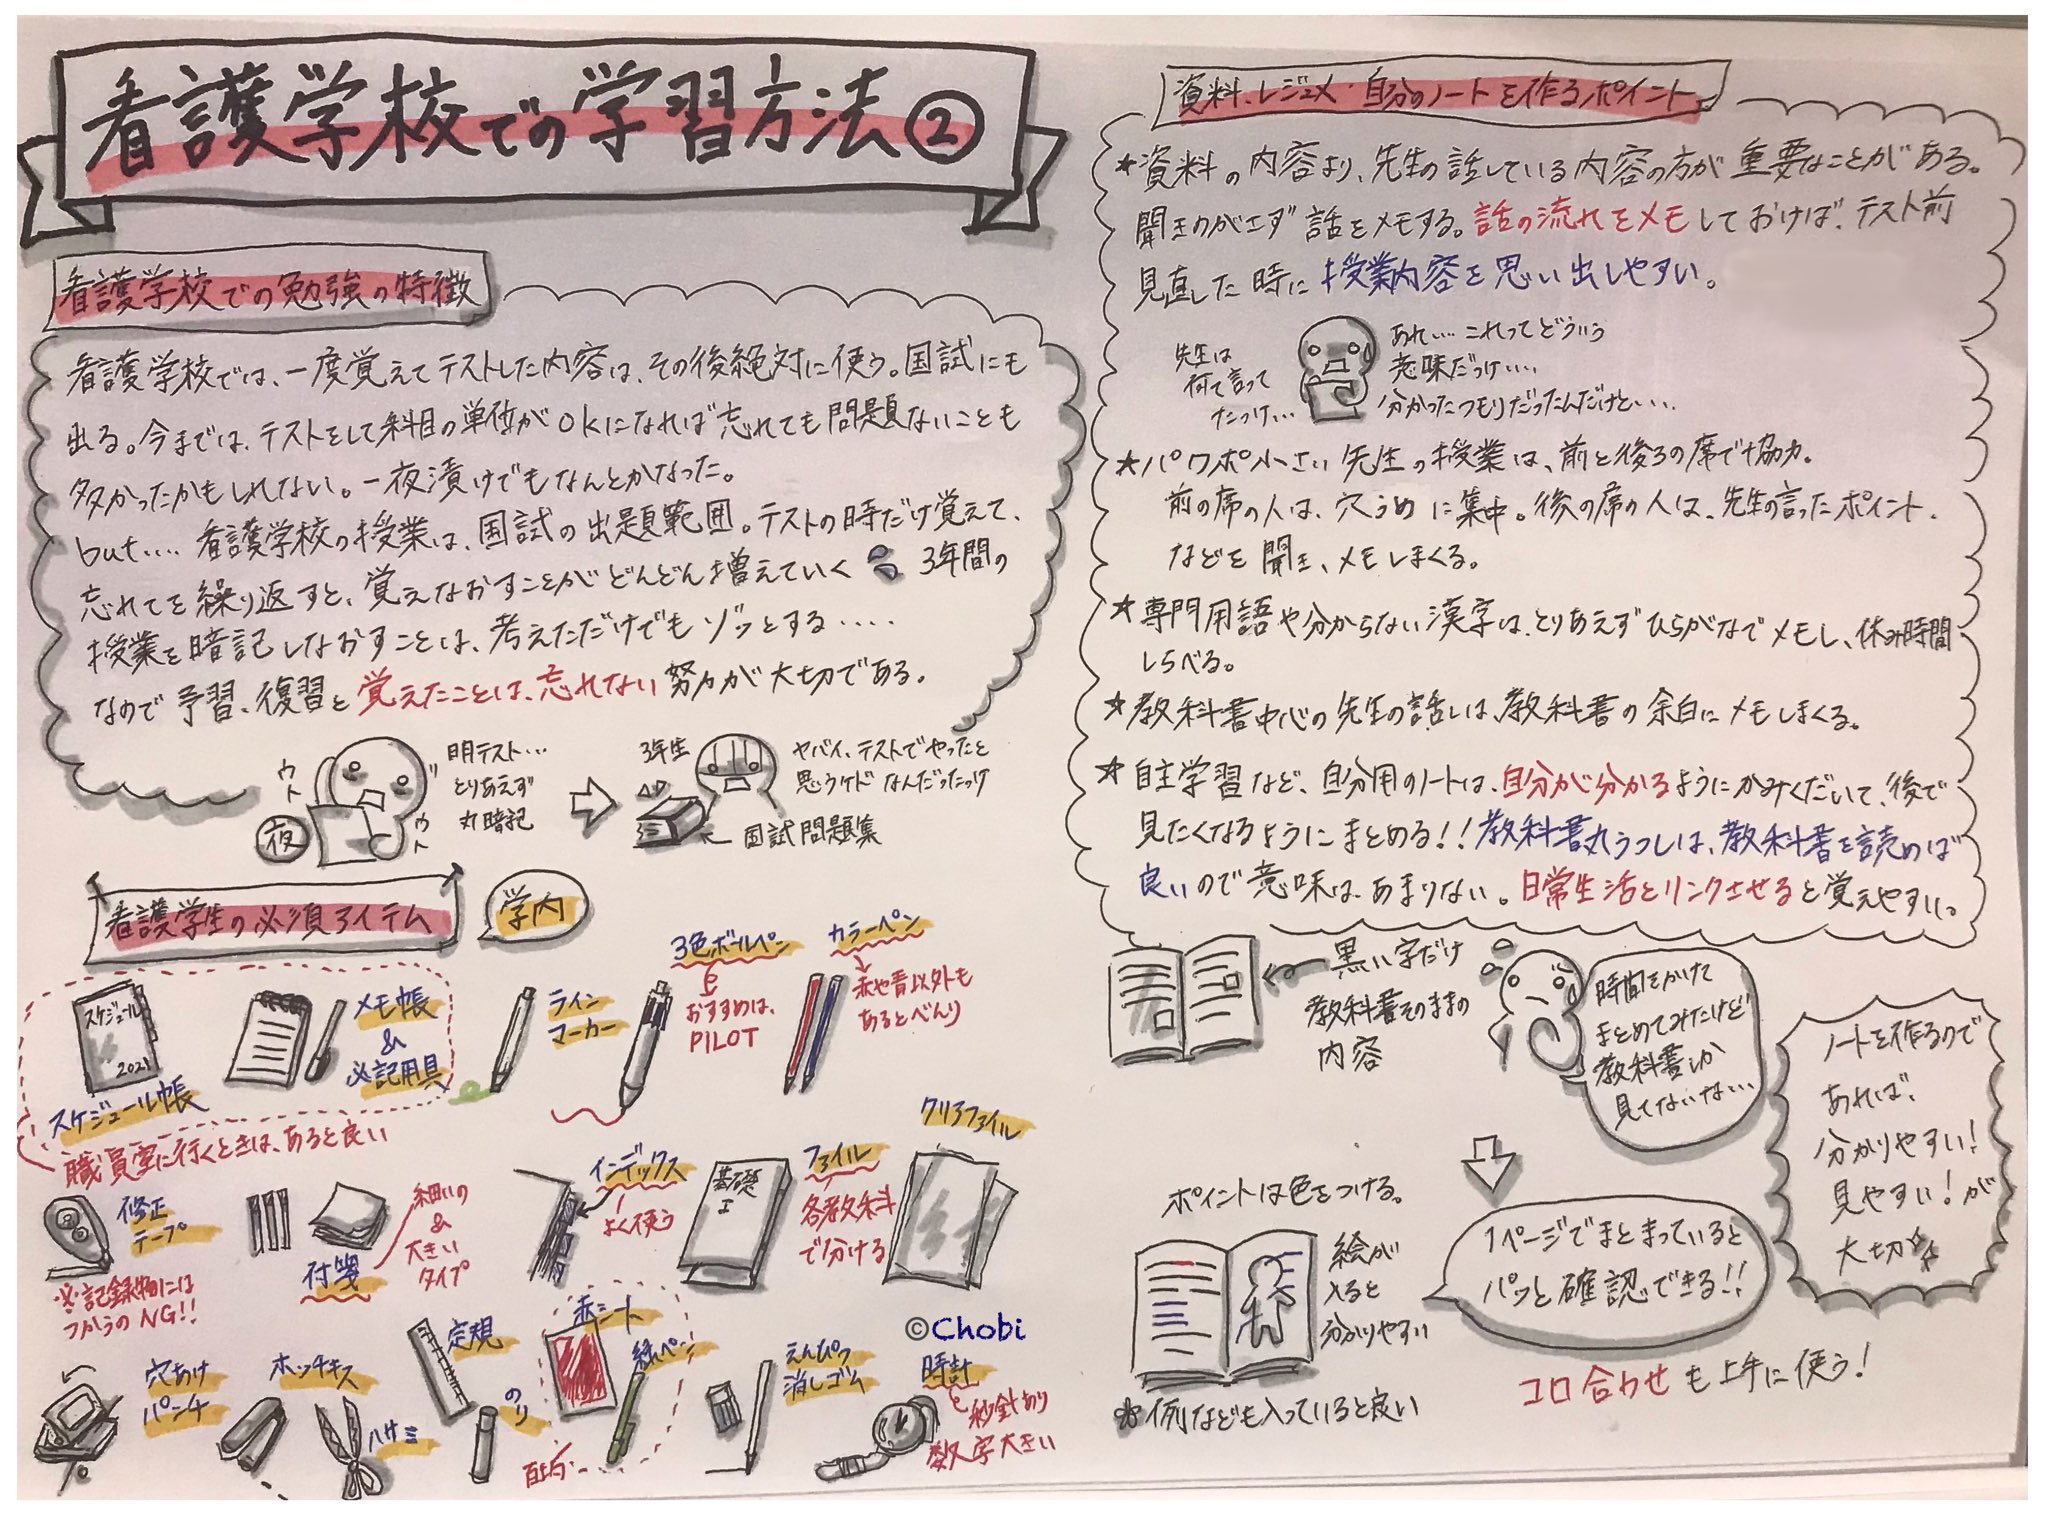 看護学校での学習方法②
看護学校での勉強の特徴
看護学校では、一度覚えてテストした内容は、その後絶対に使う。国試にも
出る。今までは、テストをして科目の単位がokになれば忘れても問題ないことも
多かったかもしれない。一夜漬けでもなんとかなった。
but.... 看護学校の授業は、国試の出題範囲。テストの時だけ覚えて、
忘れてを繰り返すと、覚えなおすことがどんどん増えていく 3年間の
授業を暗記しなおすことは、考えただけでもゾッとする.....
なので予習、復習と覚えたことは、忘れない努力が大切である。
ウト
ウト
夜
明日テスト...
とりあえず
丸暗記
3年生
ヤバイ、テストでやったと
思うケドなんだったっけ
国試問題集
看護学生の必須アイテム
学内
スケジュール
2021
スケジュール帳
メモ帳
&
筆記用具
職員室に行くときは、あると良い
ライン
マーカー
3色ボールペン
おすすめは、
PILOT
カラーペン
赤や青以外も
あるとべんり
修正
テープ
※記録物には
つかうのNG!!
付箋
細いの
&
大きい
タイプ
インデックス
よく使う
基礎
I
ファイル
各教科
で分ける
クリアファイル
穴あけ
パンチ
ホッチキス
ハサミ
定規
のり
赤シート
緑ペン
えんぴつ
消しゴム
©Chobi
時計
秒針あり
数字大きい
資料・レジュメ・自分のノートを作るポイント
★資料の内容より、先生の話している内容の方が重要なことがある。
聞きのがさず話をメモする。話の流れをメモしておけば、テスト前
見直した時に授業内容を思い出しやすい。
先生は
何て言って
たっけ...
あれ....これってどういう
意味だっけ....
分かったつもりだったんだけど....
★パワポ小さい先生の授業は、前と後ろの席で協力。
前の席の人は、穴うめに集中。後の席の人は、先生の言ったポイント、
などを聞き、メモしまくる。
★専門用語や分からない漢字は、とりあえずひらがなでメモし、休み時間
しらべる。
★教科書中心の先生の話しは、教科書の余白にメモしまくる。
★自主学習など、自分用のノートは、自分が分かるようにかみくだいて、後で
見たくなるようにまとめる!!教科書丸うつしは、教科書を読めば
良いので意味は、あまりない。日常生活とリンクさせると覚えやすい。
黒い字だけ
教科書そのままの
内容
時間をかけて
まとめてみたけど
教科書しか
見てないな...
ノートを作るので
あれば、
分かりやすい!
見やすい!が
大切
ポイントは色をつける。
絵が
入ると
分かりやすい
1ページでまとまっていると
パッと確認できる!!
※例なども入っていると良い
コロ合わせも上手に使う!